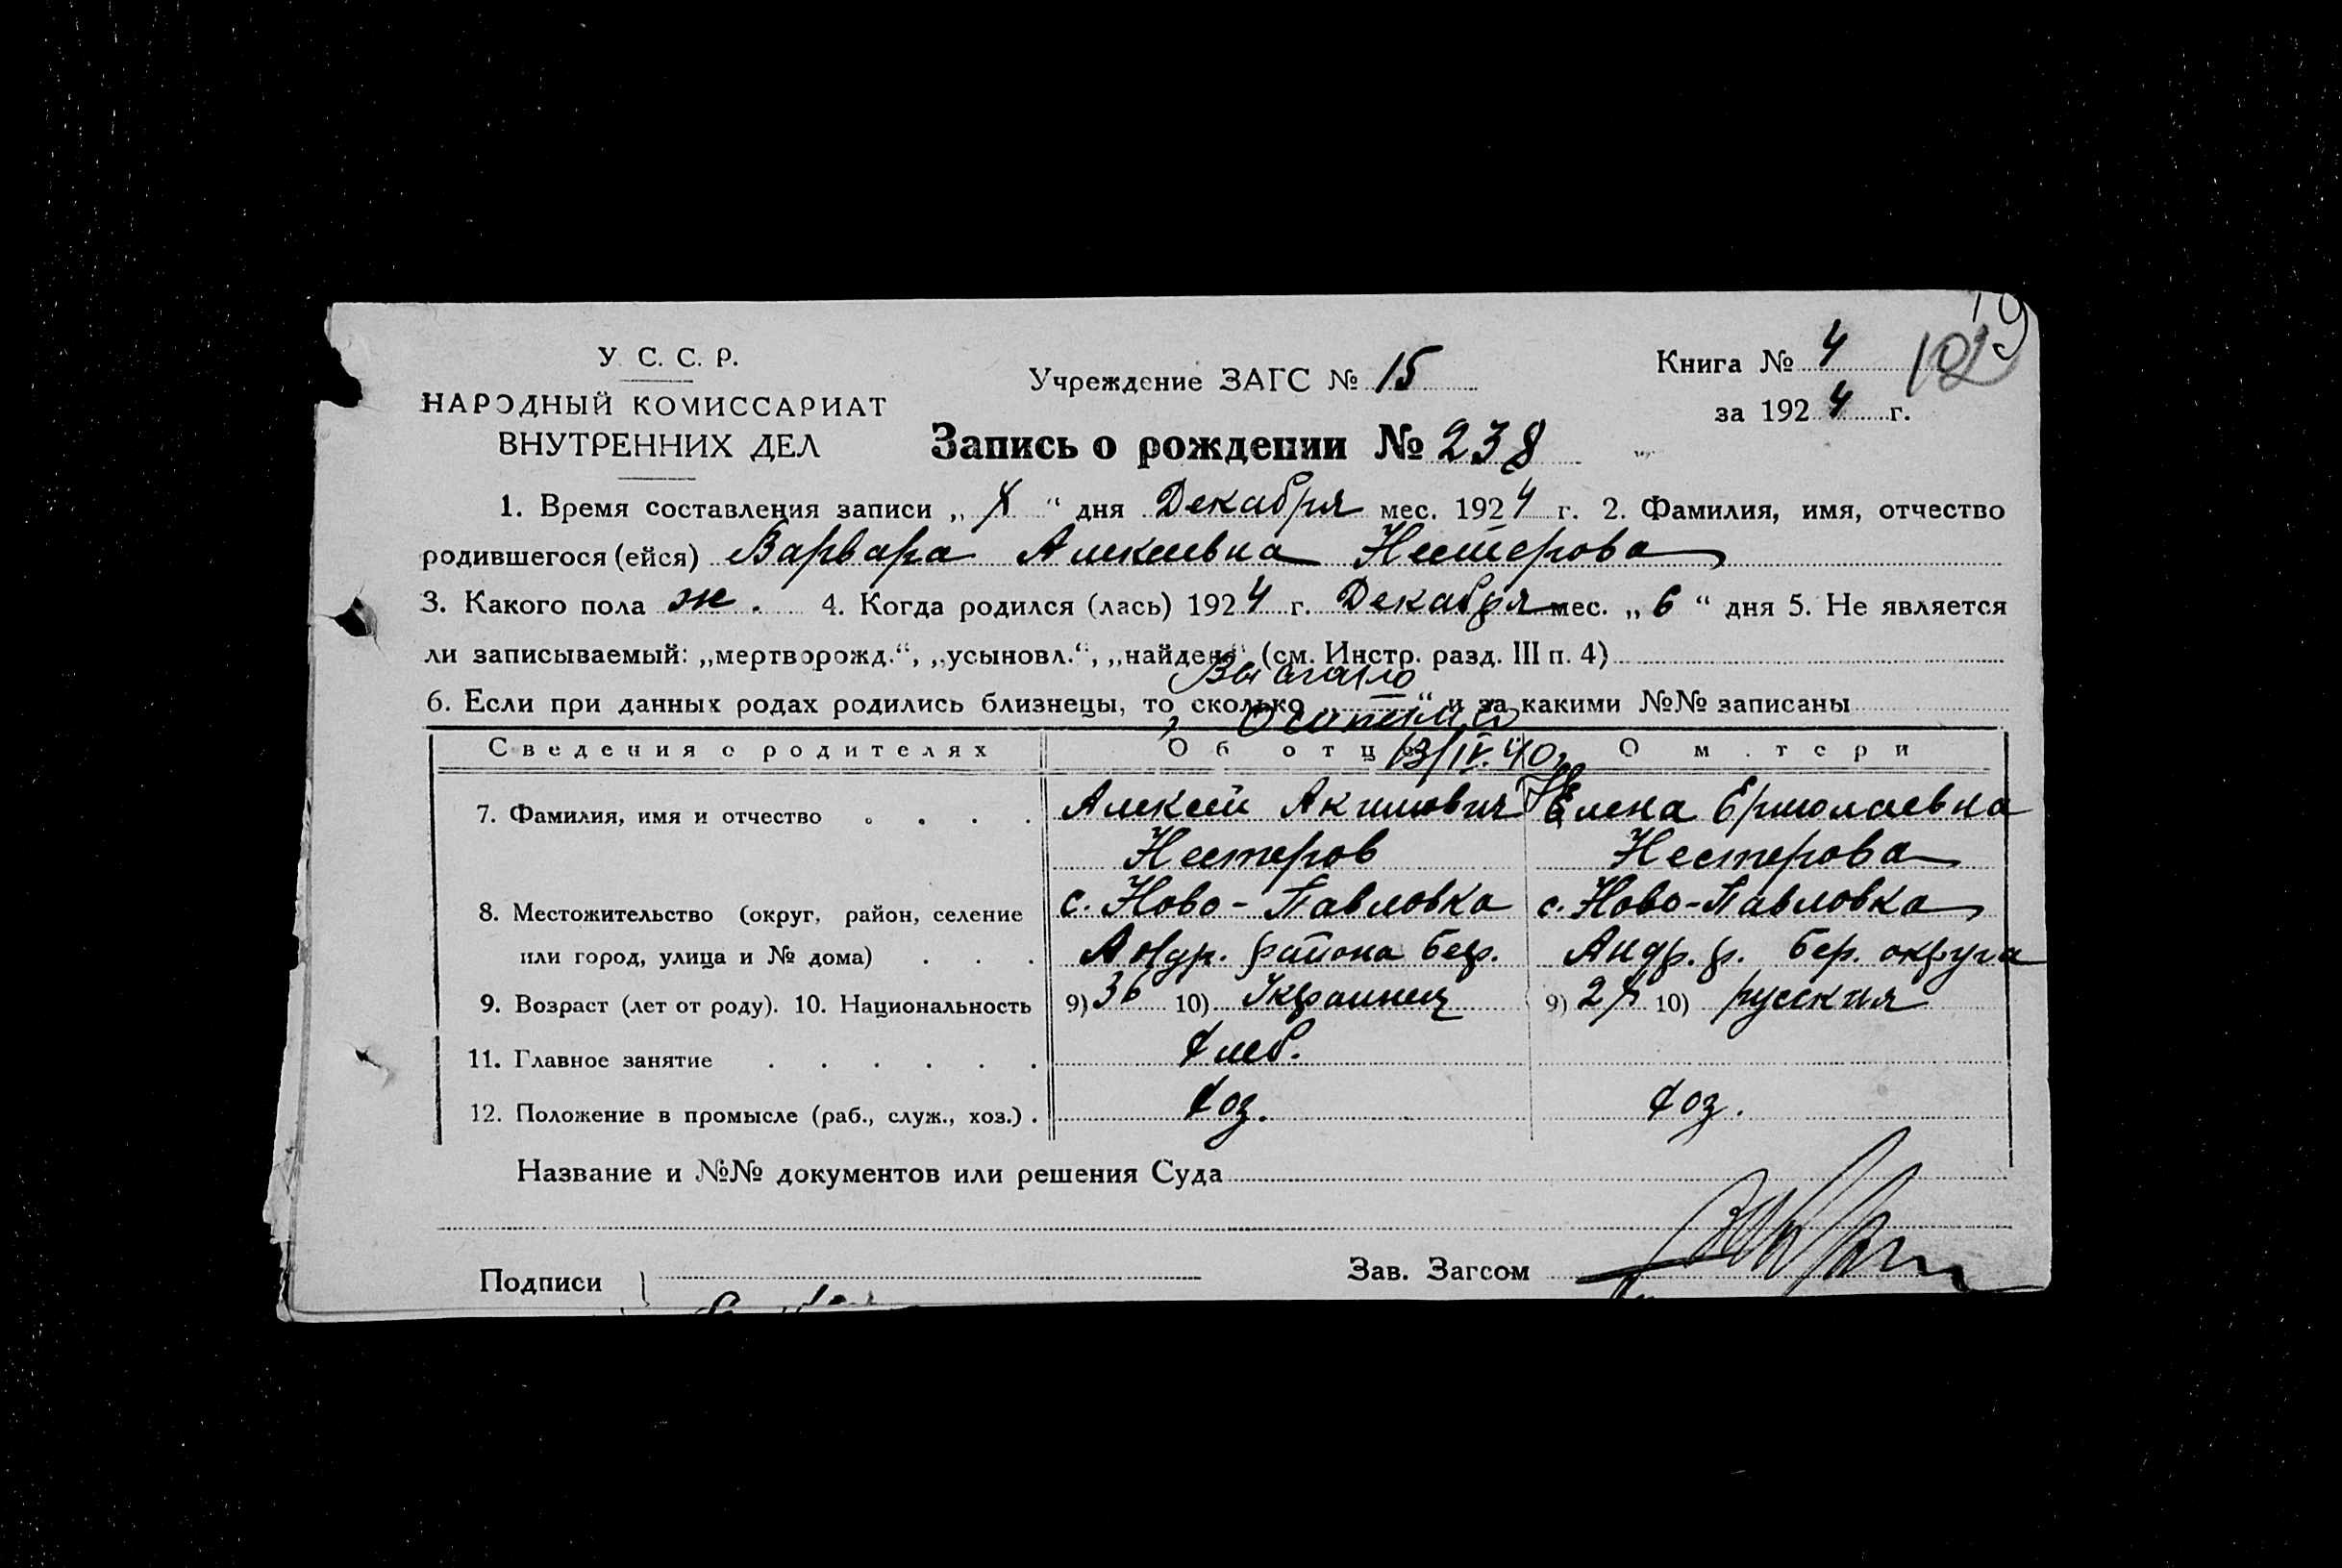 У. С. С. Р.
НАРОДНЫЙ КОМИССАРИАТ
ВНУТРЕННИХ ДЕЛ
Учреждение ЗАГС № 15
Книга № 4
за 1924 г.
Запись о рождении № 238
1. Время составления записи „ “ дня Декабря мес. 1924 г. 2. Фамилия, имя, отчество
родившегося (ейся) Варвара Алексеевна Нестерова
3. Какого пола ж. 4. Когда родился (лась) 1924 г. Декабря мес. „6“ дня 5. Не является
ли записываемый: „мертворожд.“, „усыновл.“, „найден“ (см. Инстр. разд. III п. 4)
6. Если при данных родах родились близнецы, то, сколько „ “ и за какими №№ записаны
13/IV. 40г
Сведения о родителях Об отце О матери
7. Фамилия, имя и отчество . . . . Алексей Акимович Елена Ермолаевна
Нестеров Нестерова
8. Местожительство (округ, район, селение с. Ново-Павловка с. Ново-Павловка
или город, улица и № дома) . . . Андр. района бер. Андр. р. бер. округа
9. Возраст (лет от роду). 10. Национальность 9) 36 10) Украинец 9) 10) русская
11. Главное занятие . . . . . . Хлеб.
12. Положение в промысле (раб., служ., хоз.) . Хоз. Хоз.
Название и №№ документов или решения Суда
Подписи
Зав. Загсом